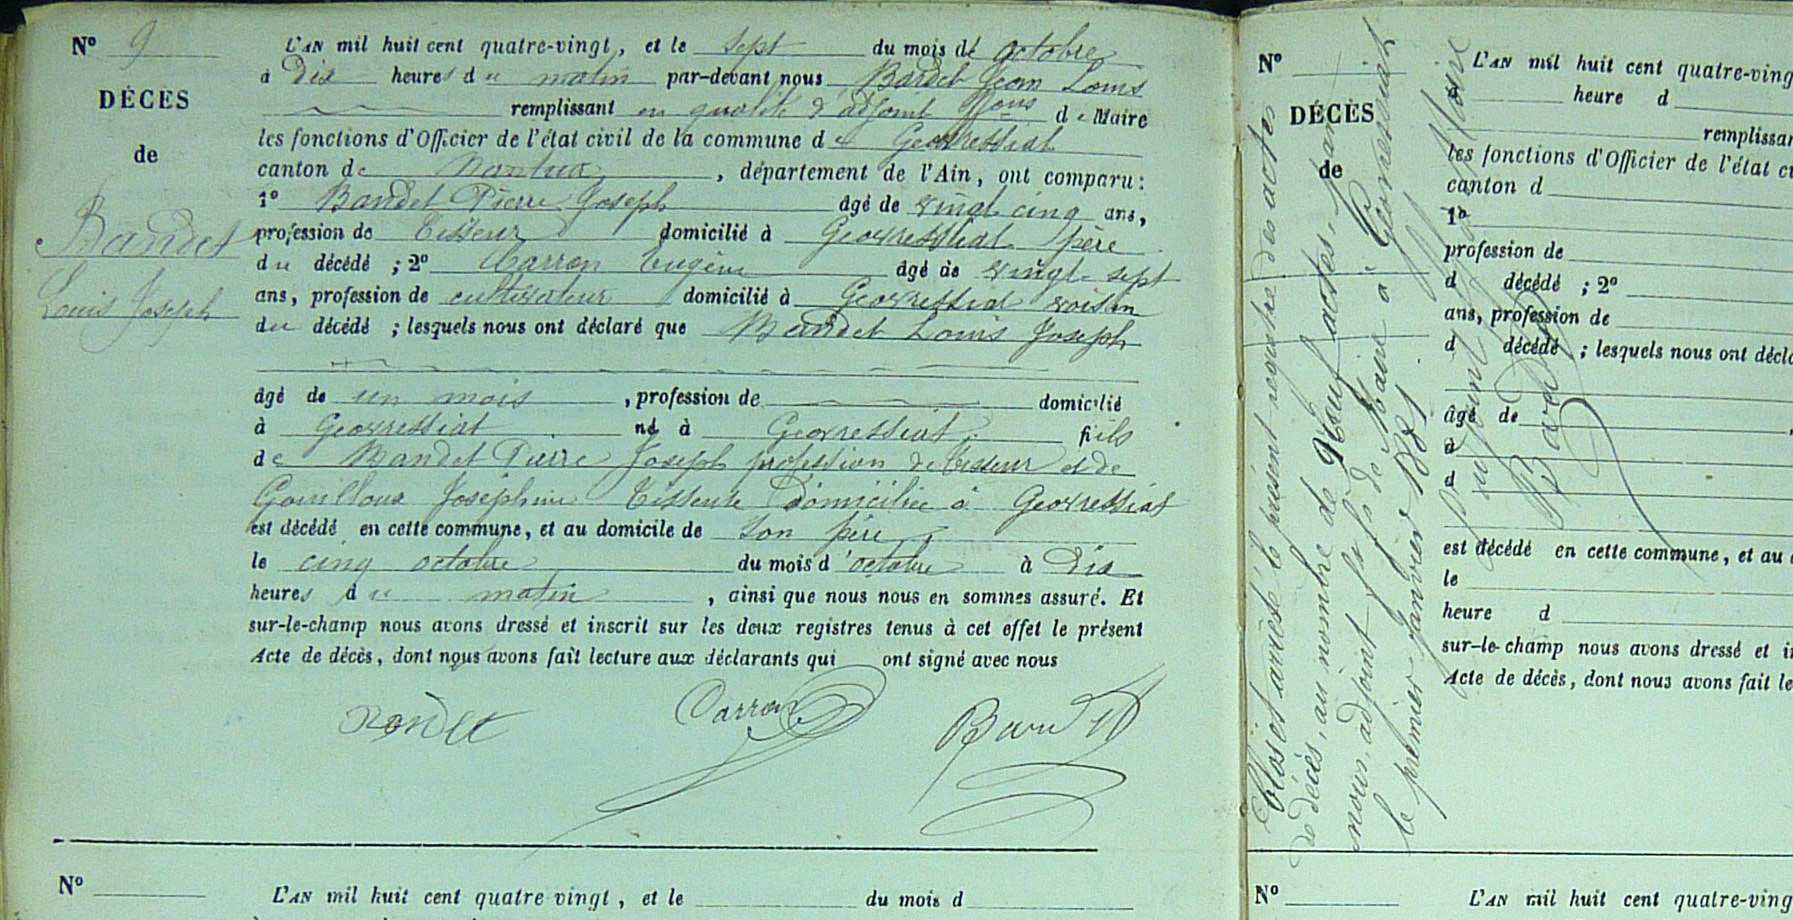 Nº 9
DÉCES
de
Bandet
Louis Joseph
L'AN mil huit cent quatre-vingt, et le sept du mois de octobre
à Dix heures du matin par-devant nous Bardet Jean Louis
remplissant en qualité d'adjoint de Maire
les fonctions d'Officier de l'état civil de la commune de Geovressiat
canton de Nantua, département de l'Ain, ont comparu:
1º Bandet Pierre Joseph âgé de vingt cinq ans,
profession de Tisseur domicilié à Geovressiat père
du décédé ; 2º Carron Eugène âgé de vingt-sept
ans, profession de cultivateur domicilié à Geovressiat voisin
du décédé ; lesquels nous ont déclaré que Bandet Louis Joseph
âgé de un mois, profession de domicilié
à Geovressiat né à Geovressiat fils
de Bandet Pierre Joseph profession de Tisseur et de
Joséphine Tisseuse domiciliée à Geovressiat
est décédé en cette commune, et au domicile de son père
le cinq octobre du mois d'octobre à Dix
heures du matin, ainsi que nous nous en sommes assuré. Et
sur-le-champ nous avons dressé et inscrit sur les deux registres tenus à cet effet le présent
Acte de décès, dont nous avons fait lecture aux déclarants qui ont signé avec nous
Bandet Carron Bardet
Nº
L'AN mil huit cent quatre vingt, et le du mois d
Nº
DÉCÈS
de
L'AN mil huit cent quatre-ving
heure d
remplissan
les fonctions d'Officier de l'état ci
canton d
1º
profession de
d décédé ; 2º
ans, profession de
d décédé ; lesquels nous ont décla
âgé de
à
d
est décédé en cette commune, et au
le
heure d
sur-le-champ nous avons dressé et in
Acte de décès, dont nous avons fait le
Clos et arrêté le présent registre des actes
de décès, au nombre de Neuf actes, par
nous adjoint de Maire à Geovressiat
le premier janvier 1881
Bardet
Nº
L'AN mil huit cent quatre-ving